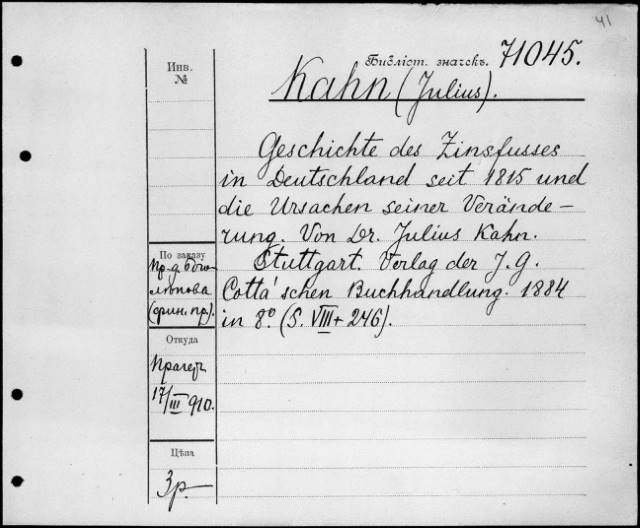 41
Библіот. значекъ. 71045.
Kahn (Julius).
Инв.
№
Geschichte des Zinsfusses
in Deutschland seit 1815 und
die Ursachen seiner Verände-
rung. Von Dr. Julius Kahn.
Stuttgart. Verlag der J. G.
Cotta'schen Buchhandlung. 1884
in 8º. (S. VIII + 246).
По заказу
Пр-д. Бого-
лѣпова
(фин. пр.).
Откуда
Прагеръ
17/III 910.
Цѣна
3 р. —